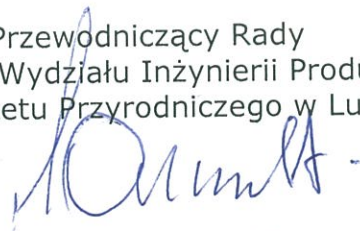 Przewodniczący Rady
Wydziału Inżynierii Produ
etu Przyrodniczego w Lu